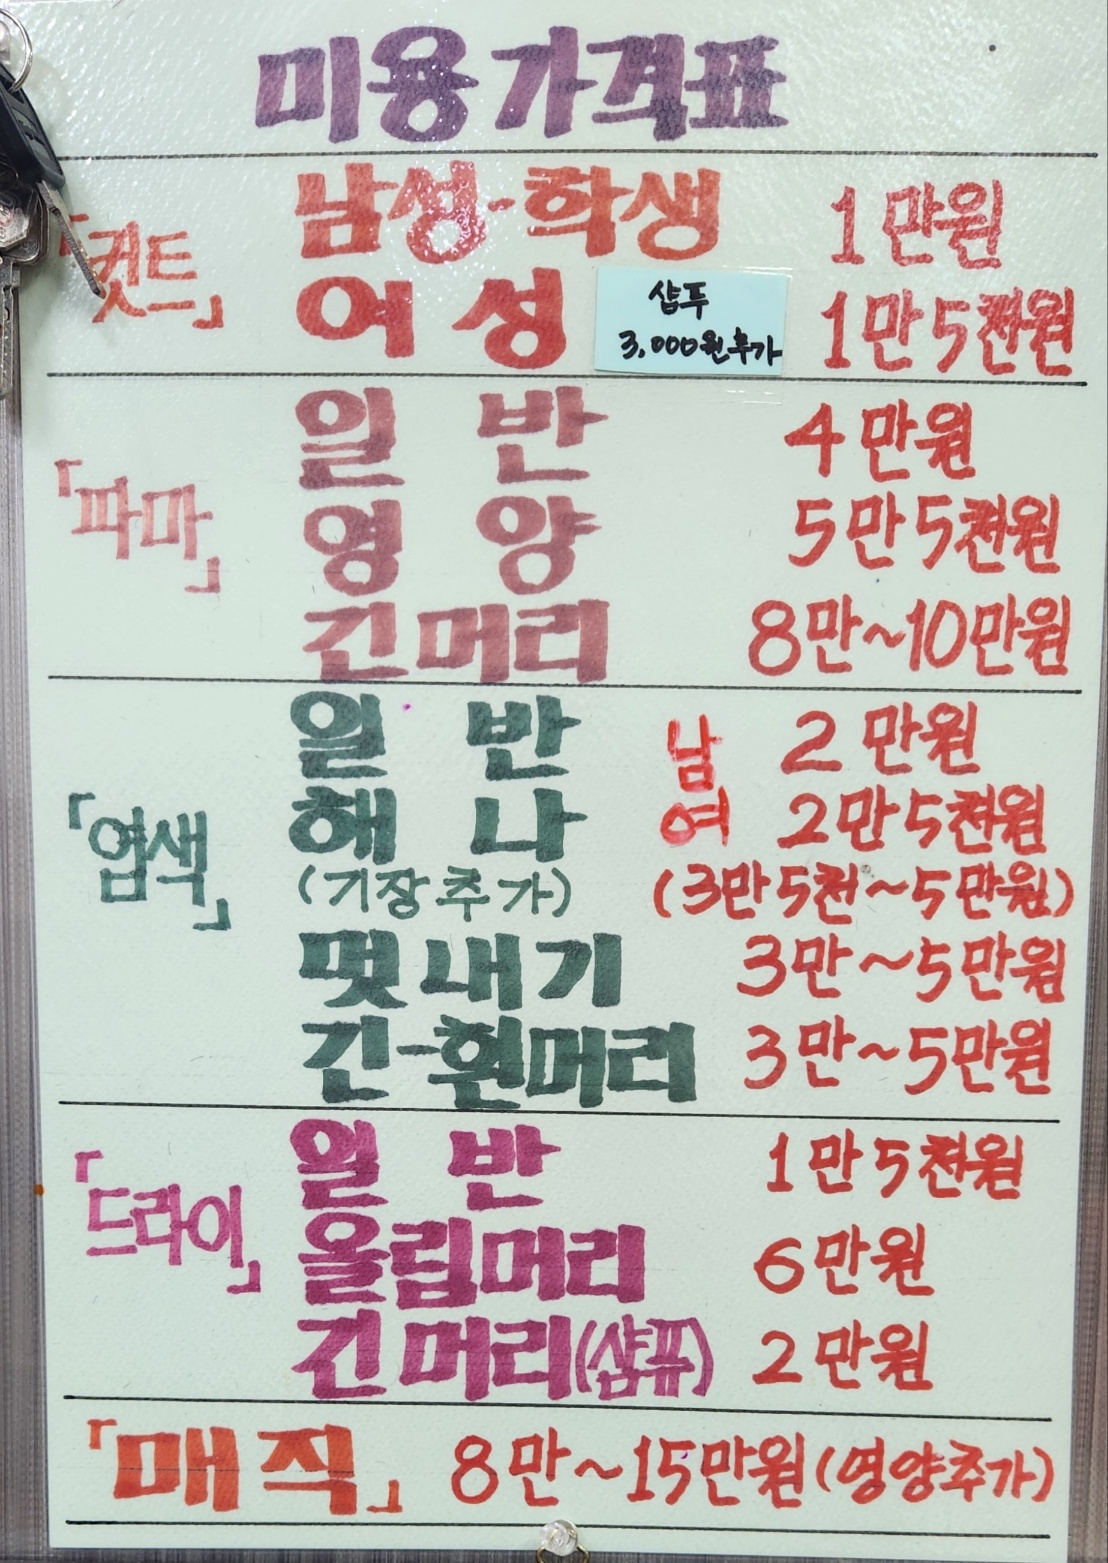 미용가격표
「컷트」
남성-학생 1만원
여성 샴푸 3,000원추가 1만5천원
「파마」
일반 4만원
영양 5만5천원
긴머리 8만~10만원
「염색」
일반 남 2만원
해나 여 2만5천원
(기장추가) (3만5천~5만원)
멋내기 3만~5만원
긴-흰머리 3만~5만원
「드라이」
일반 1만5천원
올림머리 6만원
긴머리(샴퓨) 2만원
「매직」 8만~15만원(영양추가)